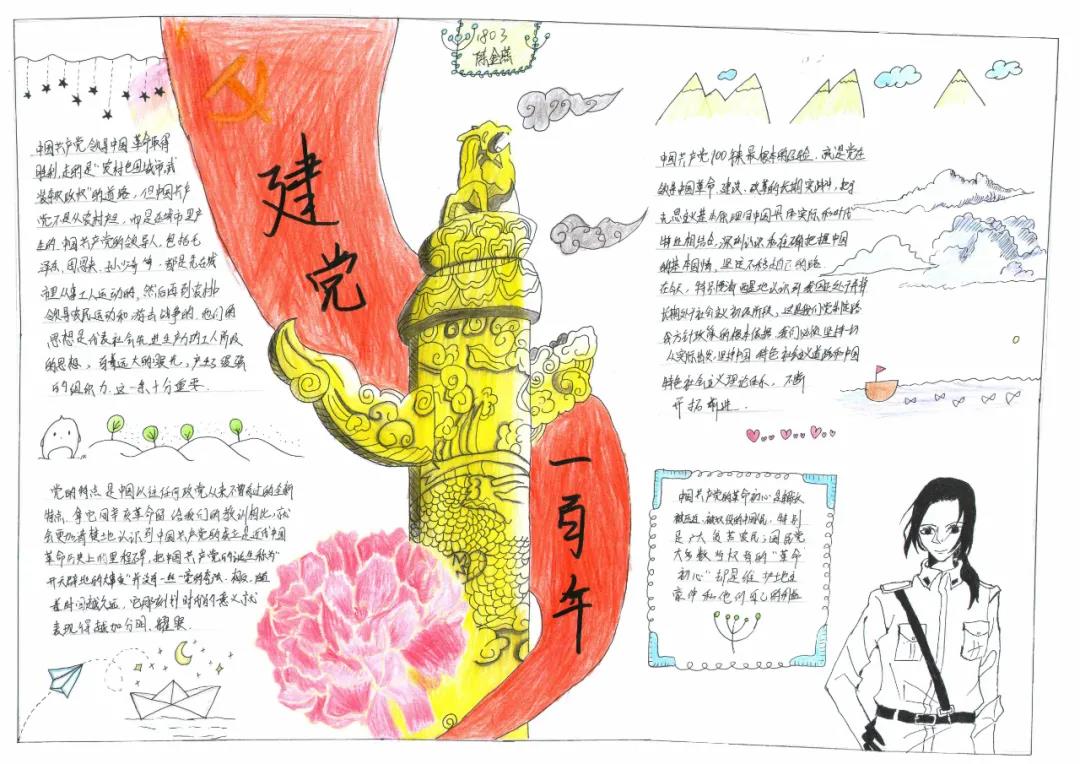 1803
陈金燕
建党
一百年
中国共产党领导中国革命取得
胜利,走的是“农村包围城市,武
装夺取政权”的道路,但中国共产
党不是从农村起,而是在城市里产
生的.中国共产党的领导人,包括毛
泽东、周恩来、刘少奇等,都是先在城
市里从事工人运动的,然后再到农村
领导农民运动和游击战争的.他们的
思想是代表社会先进生产力的工人阶级
的思想,有着远大的眼光,产生了很强
的组织力.这一条十分重要.
党的特点是中国以往任何政党从来不曾有过的全新
特点.拿它同辛亥革命留给我们的教训相比,就
会更加清楚地认识到中国共产党的成立是近代中国
革命历史上的里程碑,把中国共产党的诞生称为
开天辟地的大事变”并没有一丝一毫的夸张.
着时间越久远,它那划时代的意义就
表现得越加分明、耀眼.
中国共产党100年来最根本的经验,就是党在
领导中国革命、建设、改革的长期实践中,把马
克思主义基本原理同中国具体实际和时代
特征相结合,深刻认识和准确把握中国
的基本国情,坚定不移走自己的路
长期处于社会主义初级阶段,这是我们党制定路
线方针政策的根本依据.我们必须坚持一切
从实际出发,坚持中国特色社会主义道路和中国
特色社会主义理论体系,不断
开拓前进.
中国共产党的革命初心是解放
被压迫、被奴役的中国人,特别
是广大贫苦农民;国民党
大多数当权者的“革命
初心”却是维护地主
豪绅和他们自己的利益